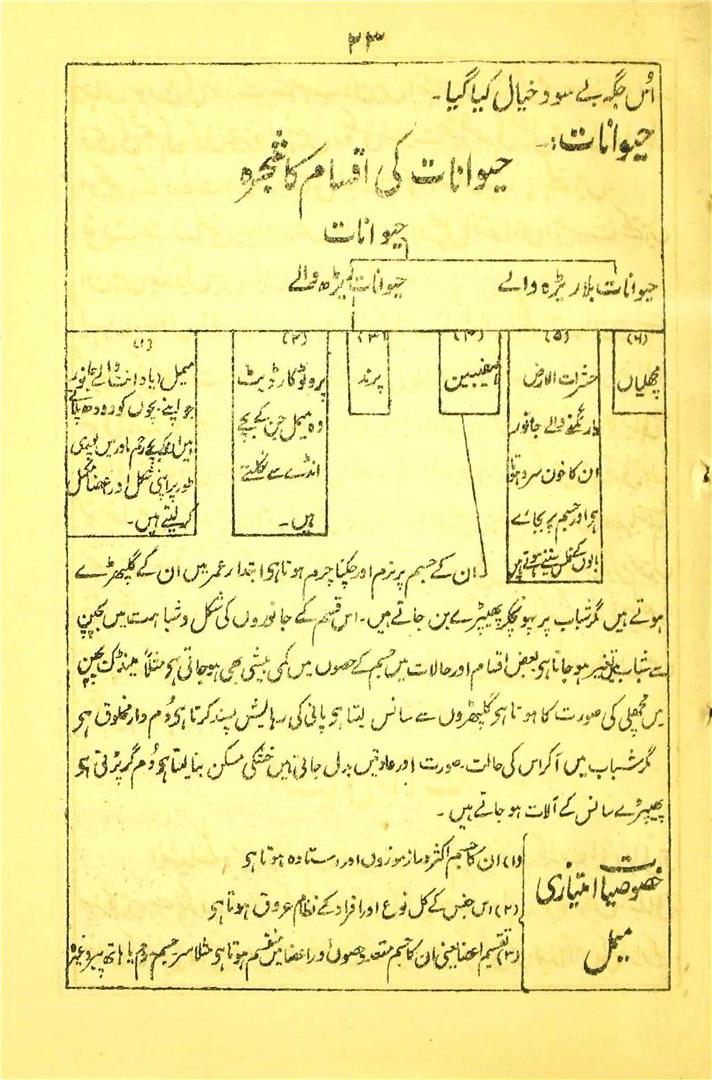 ۳۳
اُس جگہ بے سود خیال کیا گیا۔
حیوانات:۔
حیوانات کی اقسام کا شجرہ
حیوانات
حیوانات بلا ریڑہ والے
حیوانات ریڑھ والے
(۱)
میمل (یا) دانت والے جانور
جو اپنے بچوں کو دودھ پلاتے
ہیں اور انکے بچے رحم مادر میں پوری
طور پر اپنی شکل اور اعضا مکمل
کر لیتے ہیں۔
(۲)
پروٹوکارڈیٹ
وہ میمل جن کے بچے
انڈے سے نکلتے
ہیں۔
(۳)
پرند
(۴)
ایمفیبین
(۵)
حشرات الارض
یا رینگنے والے جانور
ان کا خون سرد ہوتا
ہے اور جسم پر بجائے
بالوں کے فلس بنے ہوتے ہیں
(۶)
مچھلیاں
ان کے جسم پر نرم اور چکنا چرم ہوتا ہی ابتدار عمر میں ان کے گلپھڑے
ہوتے ہیں مگر شباب پر پہونچکر پھیپڑے بن جاتے ہیں۔ اس قسم کے جانوروں کی شکل و شباہت میں بچپن
سے شباب میں تغیر ہو جاتا ہی بعض اقسام اور حالات میں جسم کے حصوں میں کمی بیشی بھی ہو جاتی ہی مثلاً مینڈک بچپن
میں مچھلی کی صورت کا ہوتا ہی گلپھڑوں سے سانس لیتا ہی پانی کی رہایش پسند کرتا ہی دُم دار مخلوق ہی
مگر شباب میں آکر اس کی حالت۔ صورت اور عادتیں بدلی جاتی ہیں خشکی مسکن بنا لیتا ہی دُم گر پڑتی ہی
پھیپڑے سانس کے آلات ہو جاتے ہیں۔
خصوصیات امتیازی
میمل
(۱) ان کا جسم اکثر دراز موزوں اور استادہ ہوتا ہی
(۲) اس جنس کے کل نوع اور افراد کے نظام عروق ہوتا ہی
(۳) تقسیم اعضا یعنی ان کا جسم متعدد حصوں اور اعضا میں منقسم ہوتا ہی مثلاً سر جسم دم یا ہاتھ پیر وغیرہ